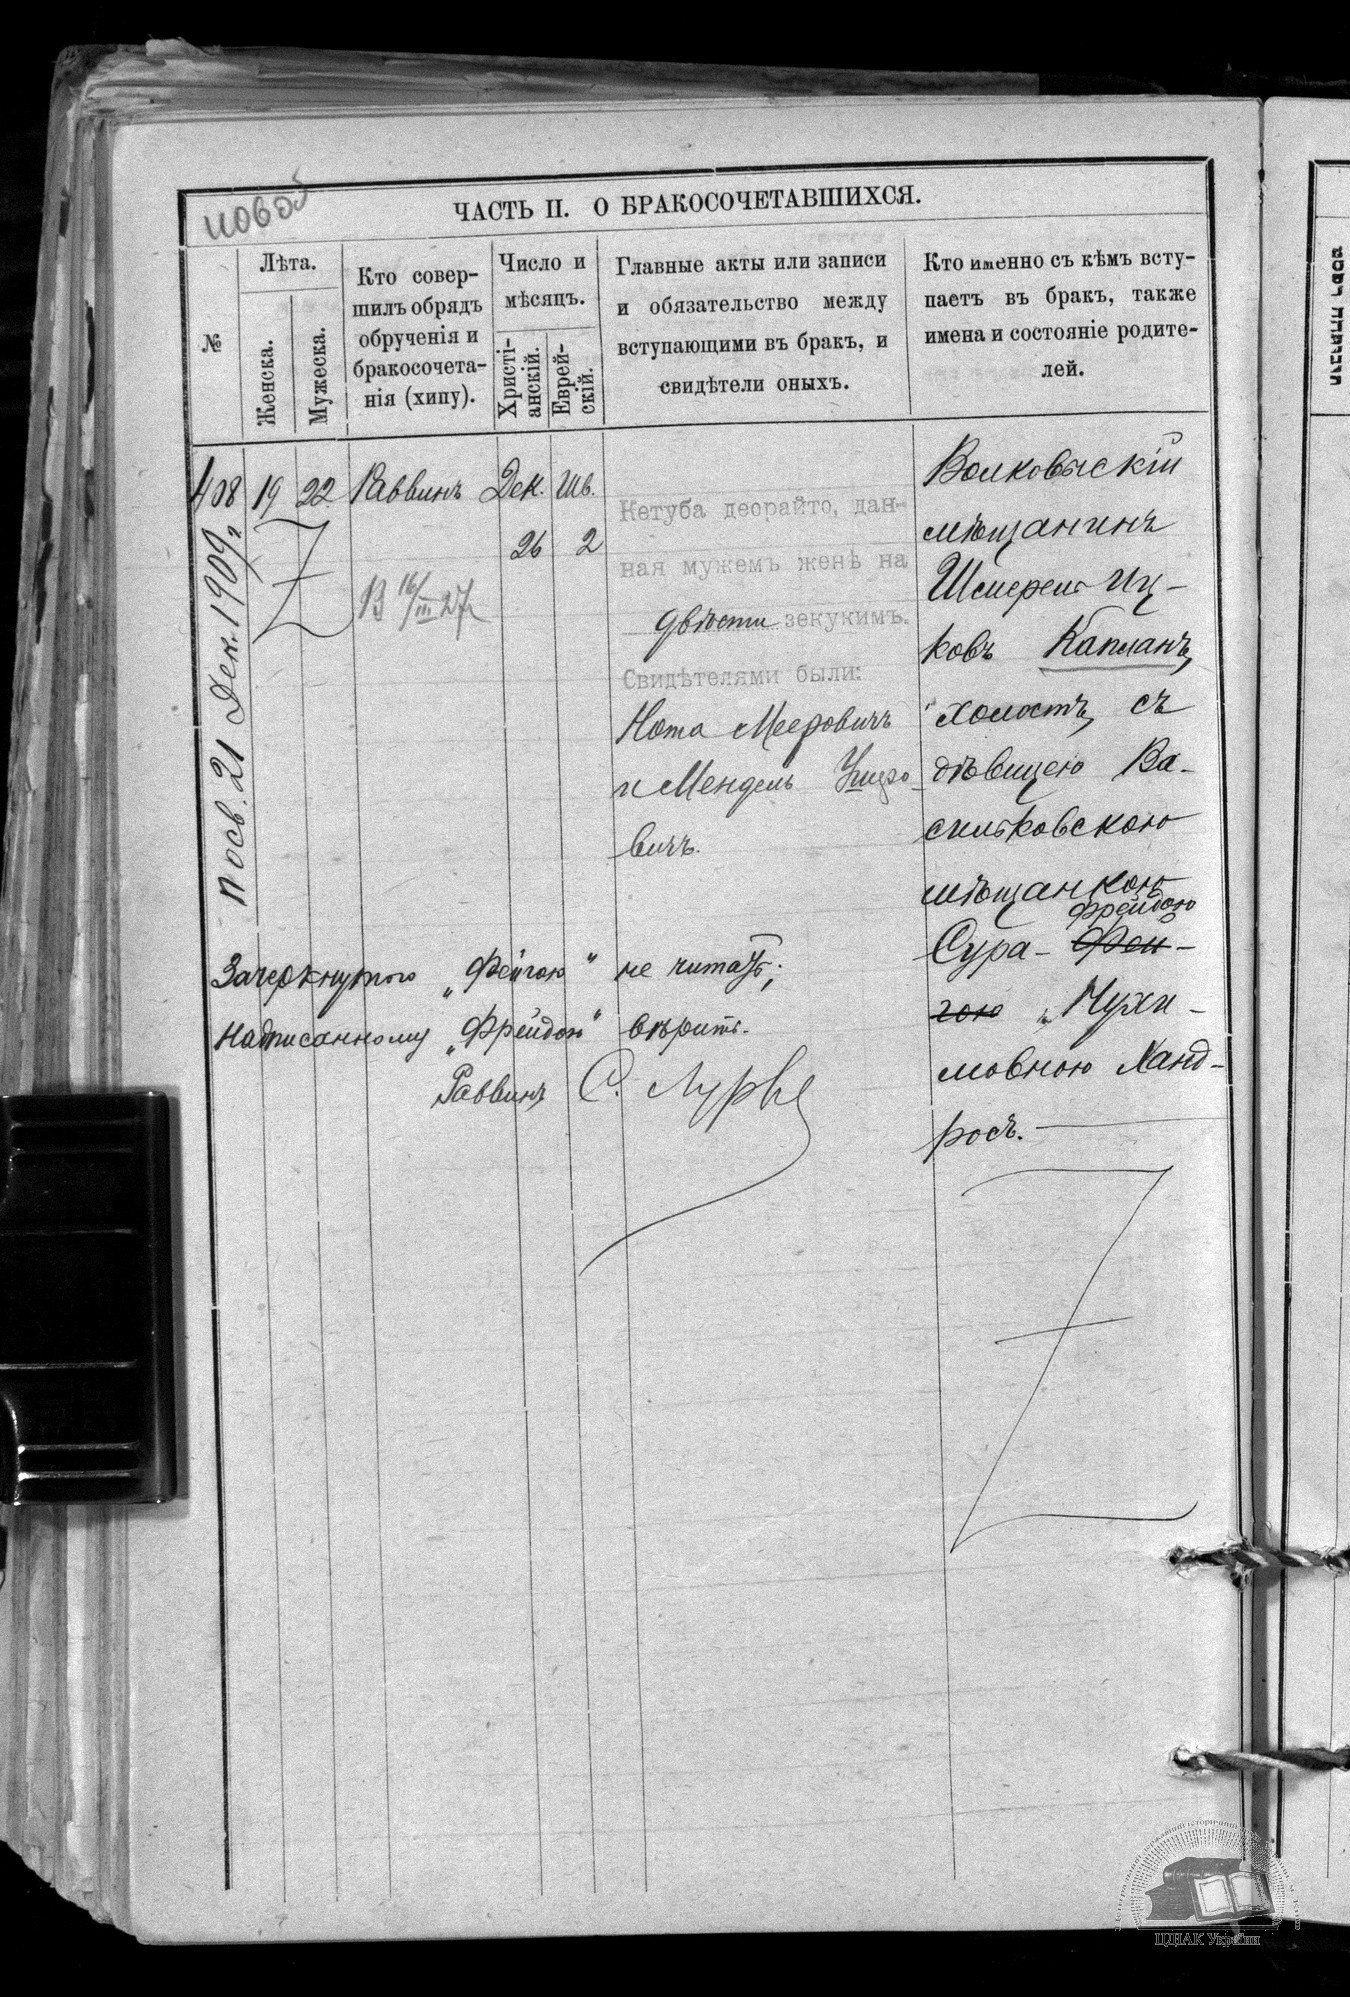 новой
ЧАСТЬ II. О БРАКОСОЧЕТАВШИХСЯ.
№
Лѣта.
Женска.
Мужеска.
Кто совер-
шилъ обрядъ
обрученія и
бракосочета-
нія (хипу).
Число и
мѣсяцъ.
Христі-
анскій.
Еврей-
скій.
Главные акты или записи
и обязательство между
вступающими въ бракъ, и
свидѣтели оныхъ.
Кто именно съ кѣмъ всту-
паетъ въ бракъ, также
имена и состояніе родите-
лей.
408 19 22 Раввинъ Дек. Шв.
26 2
В 16/III 27г
Посв. 21 Дек. 1909г
Кетуба деорайто, дан-
ная мужемъ женѣ на
двѣсти зекукимъ.
Свидѣтелями были:
Нота Мееровичъ
и Мендель
вичъ.
Волковыскій
мѣщанинъ
Шмерель Иц-
ковъ Капланъ,
холостъ, съ
дѣвицею Ва-
сильковскою
мѣщанкою
Фрейдою
Сура-Фей-
гою Нухи-
мовною Ханд-
росъ.
Зачеркнутого „Фейгою" не читать;
надписанному „Фрейдою" вѣрить.
Раввинъ С. Лурье
ЦДІАК України